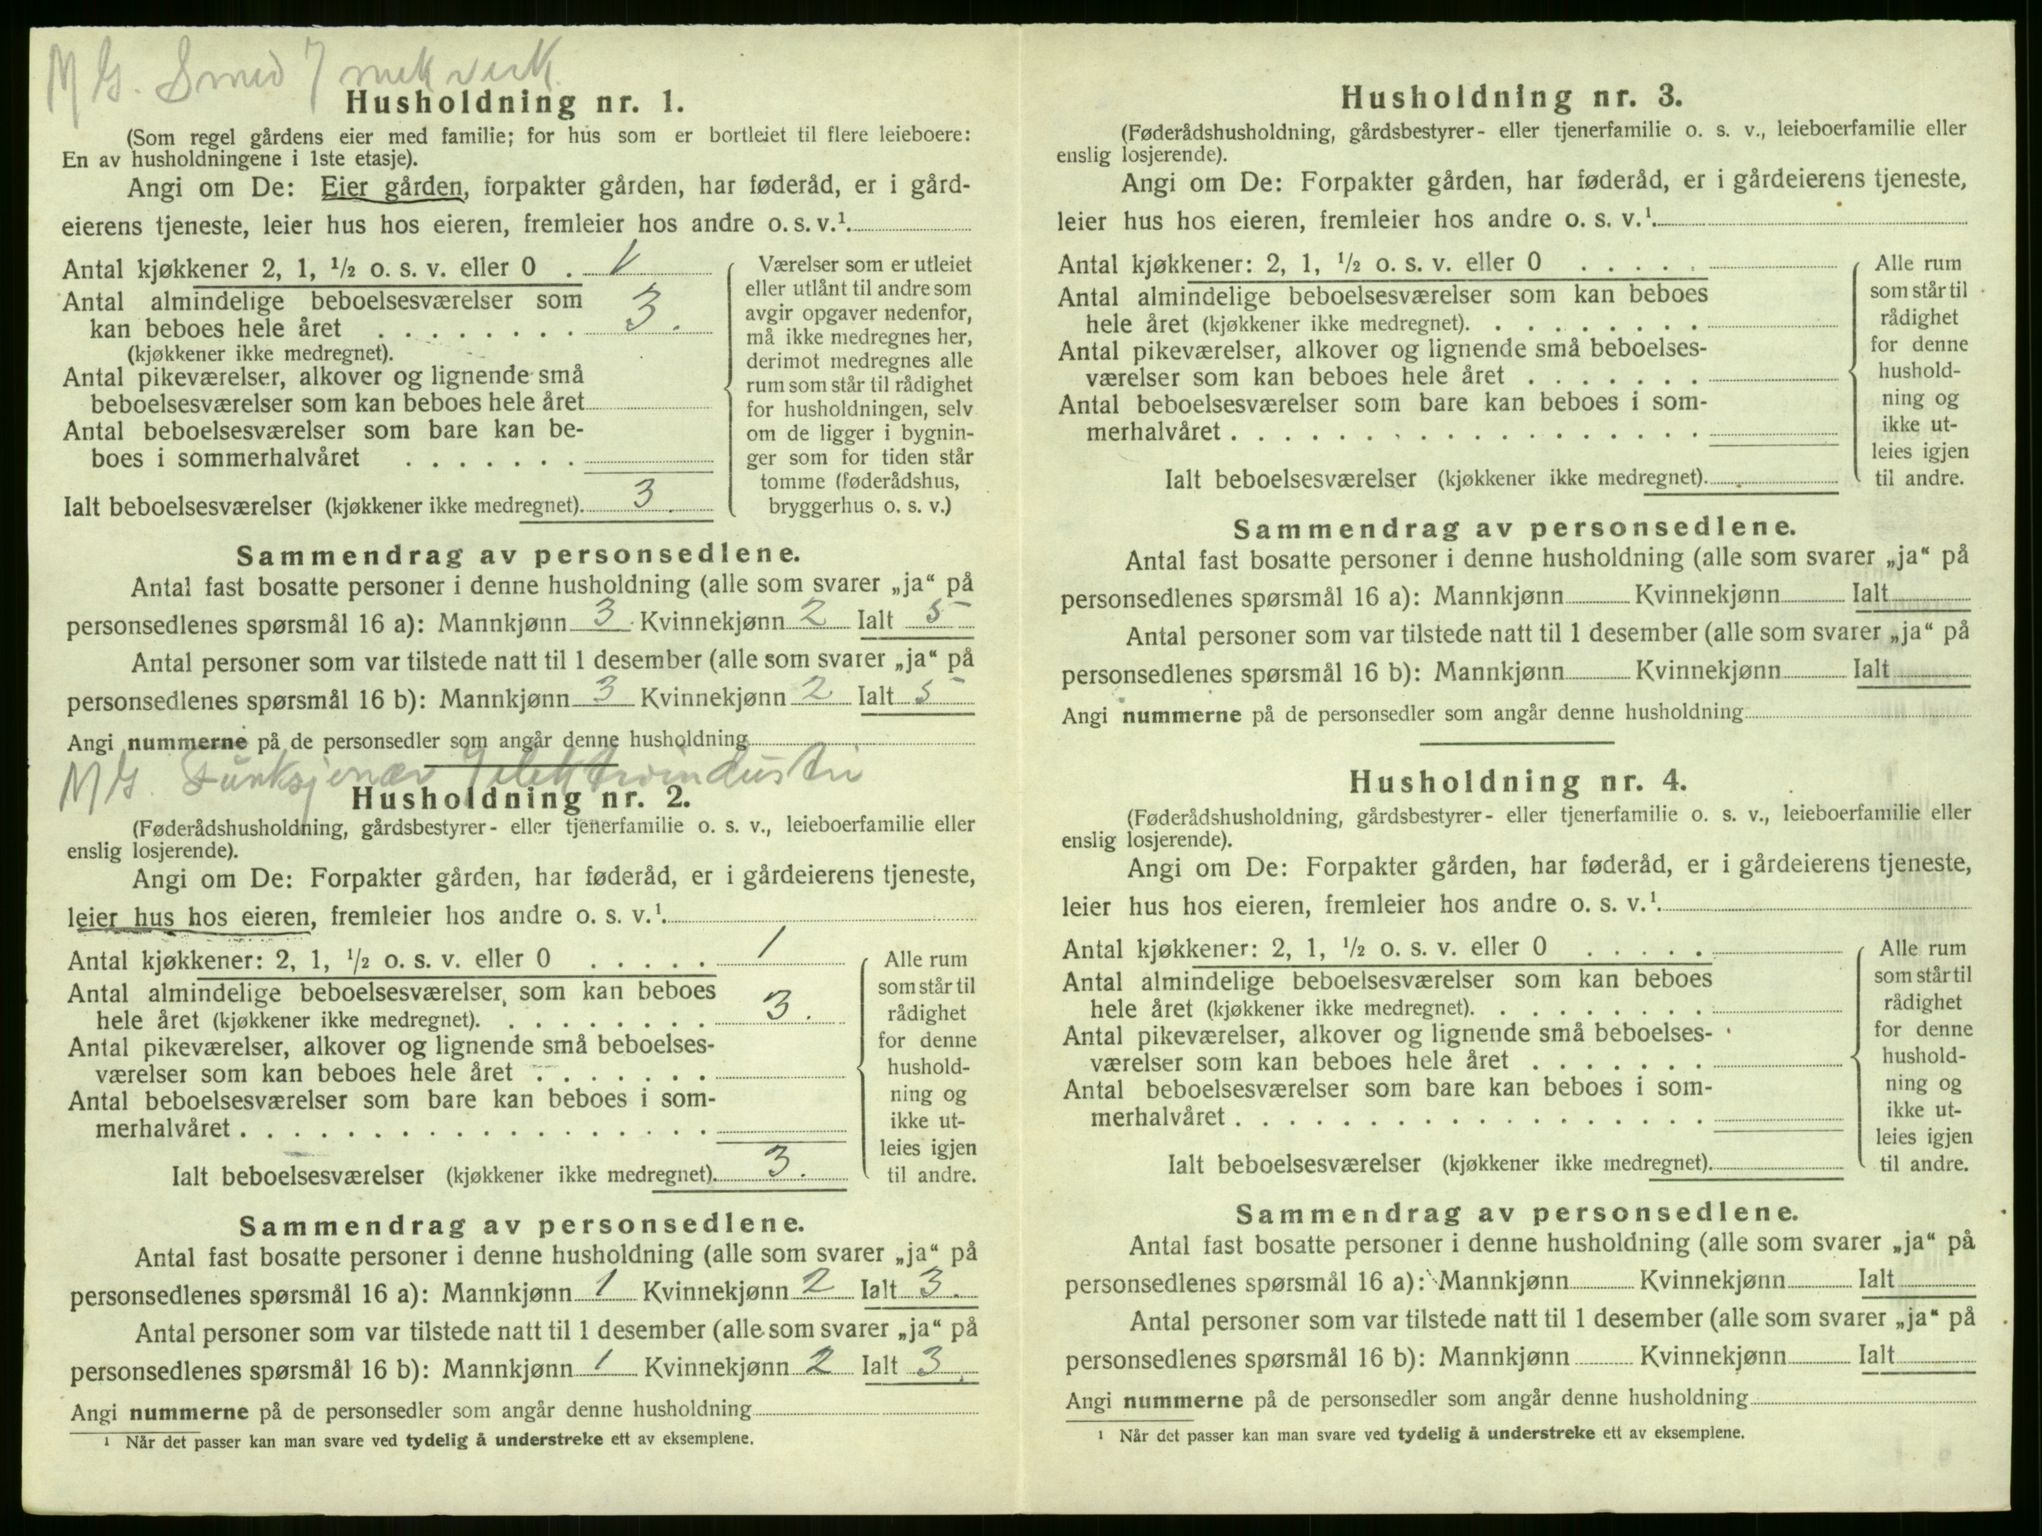 M G. Smed I mek verk.
Husholdning nr. 1.
(Som regel gårdens eier med familie; for hus som er bortleiet til flere leieboere:
En av husholdningene i 1ste etasje).
Angi om De: Eier gården, forpakter gården, har føderåd, er i gård-
eierens tjeneste, leier hus hos eieren, fremleier hos andre o. s. v.¹
Antal kjøkkener 2, 1, ½ o. s. v. eller 0 . 1
Antal almindelige beboelsesværelser som
kan beboes hele året . . . . . . . . 3.
(kjøkkener ikke medregnet).
Antal pikeværelser, alkover og lignende små
beboelsesværelser som kan beboes hele året
Antal beboelsesværelser som bare kan be-
boes i sommerhalvåret . . . . . . .
Ialt beboelsesværelser (kjøkkener ikke medregnet). 3.
Værelser som er utleiet
eller utlånt til andre som
avgir opgaver nedenfor,
må ikke medregnes her,
derimot medregnes alle
rum som står til rådighet
for husholdningen, selv
om de ligger i bygnin-
ger som for tiden står
tomme (føderådshus,
bryggerhus o. s. v.)
Sammendrag av personsedlene.
Antal fast bosatte personer i denne husholdning (alle som svarer „ja“ på
personsedlenes spørsmål 16 a): Mannkjønn 3 Kvinnekjønn 2 Ialt 5
Antal personer som var tilstede natt til 1 desember (alle som svarer „ja“ på
personsedlenes spørsmål 16 b): Mannkjønn 3 Kvinnekjønn 2 Ialt 5
Angi nummerne på de personsedler som angår denne husholdning
M G. Funksjonær I elektroindustri
Husholdning nr. 2.
(Føderådshusholdning, gårdsbestyrer- eller tjenerfamilie o. s. v., leieboerfamilie eller
enslig losjerende).
Angi om De: Forpakter gården, har føderåd, er i gårdeierens tjeneste,
leier hus hos eieren, fremleier hos andre o. s. v.¹
Antal kjøkkener: 2, 1, ½ o. s. v. eller 0 . . . . . 1
Antal almindelige beboelsesværelser som kan beboes
hele året (kjøkkener ikke medregnet). . . . . . . . . 3.
Antal pikeværelser, alkover og lignende små beboelses-
værelser som kan beboes hele året . . . . . . .
Antal beboelsesværelser som bare kan beboes i som-
merhalvåret . . . . . . . . . . . . . . . . . .
Ialt beboelsesværelser (kjøkkener ikke medregnet). 3.
Alle rum
som står til
rådighet
for denne
hushold-
ning og
ikke ut-
leies igjen
til andre.
Sammendrag av personsedlene.
Antal fast bosatte personer i denne husholdning (alle som svarer „ja“ på
personsedlenes spørsmål 16 a): Mannkjønn 1 Kvinnekjønn 2 Ialt 3.
Antal personer som var tilstede natt til 1 desember (alle som svarer „ja“ på
personsedlenes spørsmål 16 b): Mannkjønn 1 Kvinnekjønn 2 Ialt 3.
Angi nummerne på de personsedler som angår denne husholdning
¹ Når det passer kan man svare ved tydelig å understreke ett av eksemplene.
Husholdning nr. 3.
(Føderådshusholdning, gårdsbestyrer- eller tjenerfamilie o. s. v., leieboerfamilie eller
enslig losjerende).
Angi om De: Forpakter gården, har føderåd, er i gårdeierens tjeneste,
leier hus hos eieren, fremleier hos andre o. s. v.¹
Antal kjøkkener: 2, 1, ½ o. s. v. eller 0 . . . . .
Antal almindelige beboelsesværelser som kan beboes
hele året (kjøkkener ikke medregnet). . . . . . . . .
Antal pikeværelser, alkover og lignende små beboelses-
værelser som kan beboes hele året . . . . . . .
Antal beboelsesværelser som bare kan beboes i som-
merhalvåret . . . . . . . . . . . . . . . . . .
Ialt beboelsesværelser (kjøkkener ikke medregnet).
Alle rum
som står til
rådighet
for denne
hushold-
ning og
ikke ut-
leies igjen
til andre.
Sammendrag av personsedlene.
Antal fast bosatte personer i denne husholdning (alle som svarer „ja“ på
personsedlenes spørsmål 16 a): Mannkjønn Kvinnekjønn Ialt
Antal personer som var tilstede natt til 1 desember (alle som svarer „ja“ på
personsedlenes spørsmål 16 b): Mannkjønn Kvinnekjønn Ialt
Angi nummerne på de personsedler som angår denne husholdning
Husholdning nr. 4.
(Føderådshusholdning, gårdsbestyrer- eller tjenerfamilie o. s. v., leieboerfamilie eller
enslig losjerende).
Angi om De: Forpakter gården, har føderåd, er i gårdeierens tjeneste,
leier hus hos eieren, fremleier hos andre o. s. v.¹
Antal kjøkkener: 2, 1, ½ o. s. v. eller 0 . . . . .
Antal almindelige beboelsesværelser som kan beboes
hele året (kjøkkener ikke medregnet). . . . . . . . .
Antal pikeværelser, alkover og lignende små beboelses-
værelser som kan beboes hele året . . . . . . .
Antal beboelsesværelser som bare kan beboes i som-
merhalvåret . . . . . . . . . . . . . . . . . .
Ialt beboelsesværelser (kjøkkener ikke medregnet).
Alle rum
som står til
rådighet
for denne
hushold-
ning og
ikke ut-
leies igjen
til andre.
Sammendrag av personsedlene.
Antal fast bosatte personer i denne husholdning (alle som svarer „ja“ på
personsedlenes spørsmål 16 a): Mannkjønn Kvinnekjønn Ialt
Antal personer som var tilstede natt til 1 desember (alle som svarer „ja“ på
personsedlenes spørsmål 16 b): Mannkjønn Kvinnekjønn Ialt
Angi nummerne på de personsedler som angår denne husholdning
¹ Når det passer kan man svare ved tydelig å understreke ett av eksemplene.